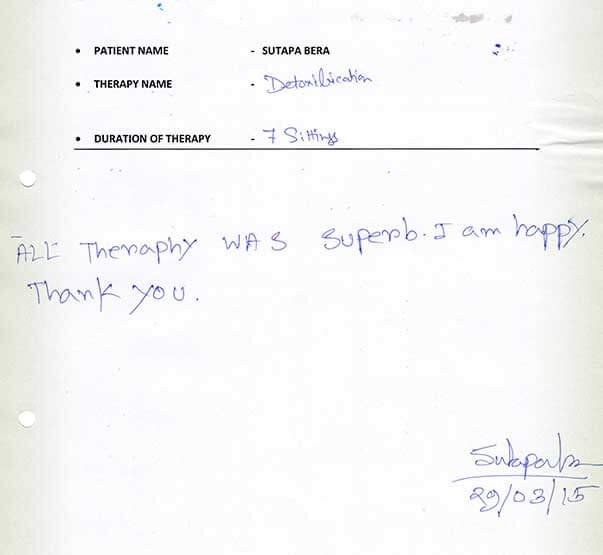 • PATIENT NAME - SUTAPA BERA
• THERAPY NAME - Detoxification
• DURATION OF THERAPY - 7 Sittings
ALL Theraphy WAS Superb. I am happy.
Thank you.
29/03/15